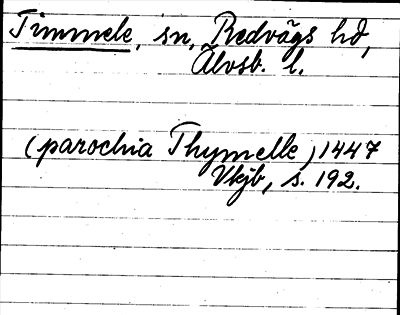 Timmele, sn, Redvägs hd,
Älvsb. l.
(parochia Thymelle) 1447
Vkjb, s. 192.